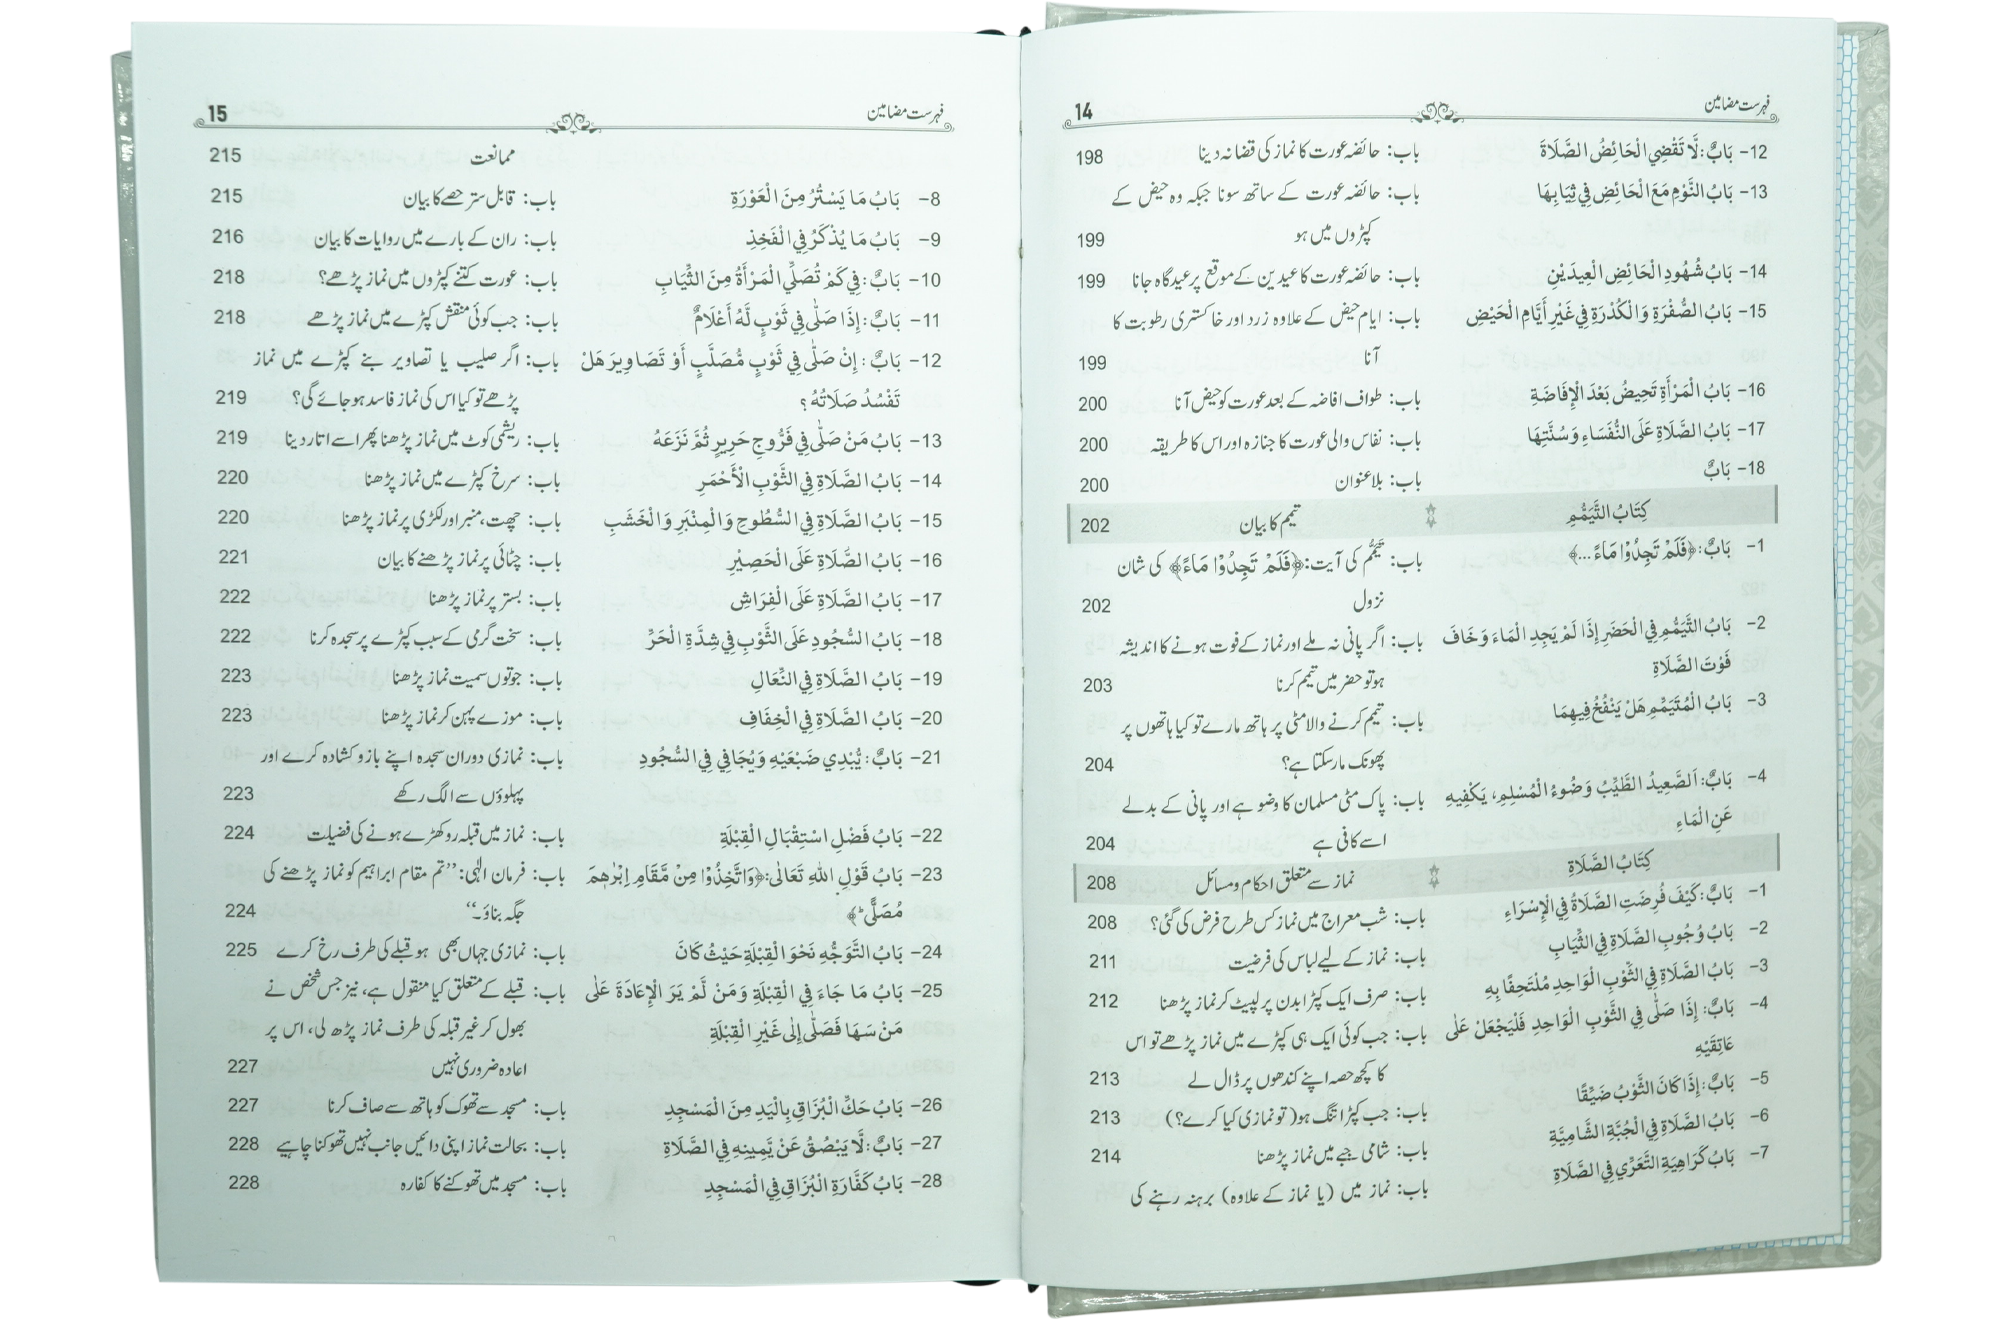 فہرست مضامین 14
12- بَابٌ: لَّا تَقْضِي الْحَائِضُ الصَّلَاةَ باب: حائضہ عورت کا نماز کی قضا نہ دینا 198
13- بَابُ النَّوْمِ مَعَ الْحَائِضِ فِي ثِيَابِهَا باب: حائضہ عورت کے ساتھ سونا جبکہ وہ حیض کے
کپڑوں میں ہو 199
14- بَابُ شُهُودِ الْحَائِضِ الْعِيدَيْنِ باب: حائضہ عورت کا عیدین کے موقع پر عیدگاہ جانا 199
15- بَابُ الصُّفْرَةِ وَالْكُدْرَةِ فِي غَيْرِ أَيَّامِ الْحَيْضِ باب: ایام حیض کے علاوہ زرد اور خاکستری رطوبت کا
آنا 199
16- بَابُ الْمَرْأَةِ تَحِيضُ بَعْدَ الْإِفَاضَةِ باب: طواف افاضہ کے بعد عورت کو حیض آنا 200
17- بَابُ الصَّلَاةِ عَلَى النُّفَسَاءِ وَسُنَّتِهَا باب: نفاس والی عورت کا جنازہ اور اس کا طریقہ 200
18- بَابٌ باب: بلاعنوان 200
كِتَابُ التَّيَمُّمِ تیمم کا بیان 202
1- بَابٌ: ﴿فَلَمْ تَجِدُوْا مَاءً ...﴾ باب: تَیَمُّم کی آیت: ﴿فَلَمْ تَجِدُوْا مَاءً﴾ کی شان
نزول 202
2- بَابُ التَّيَمُّمِ فِي الْحَضَرِ إِذَا لَمْ يَجِدِ الْمَاءَ وَخَافَ باب: اگر پانی نہ ملے اور نماز کے فوت ہونے کا اندیشہ
فَوْتَ الصَّلَاةِ ہو تو حضر میں تیمم کرنا 203
3- بَابُ الْمُتَيَمِّمِ هَلْ يَنْفُخُ فِيهِمَا باب: تیمم کرنے والا مٹی پر ہاتھ مارے تو کیا ہاتھوں پر
پھونک مار سکتا ہے؟ 204
4- بَابٌ: اَلصَّعِيدُ الطَّيِّبُ وَضُوءُ الْمُسْلِمِ، يَكْفِيهِ باب: پاک مٹی مسلمان کا وضو ہے اور پانی کے بدلے
عَنِ الْمَاءِ اسے کافی ہے 204
كِتَابُ الصَّلَاةِ نماز سے متعلق احکام و مسائل 208
1- بَابٌ: كَيْفَ فُرِضَتِ الصَّلَاةُ فِي الْإِسْرَاءِ باب: شب معراج میں نماز کس طرح فرض کی گئی؟ 208
2- بَابُ وُجُوبِ الصَّلَاةِ فِي الثِّيَابِ باب: نماز کے لیے لباس کی فرضیت 211
3- بَابُ الصَّلَاةِ فِي الثَّوْبِ الْوَاحِدِ مُلْتَحِفًا بِهِ باب: صرف ایک کپڑا بدن پر لپیٹ کر نماز پڑھنا 212
4- بَابٌ: إِذَا صَلَّى فِي الثَّوْبِ الْوَاحِدِ فَلْيَجْعَلْ عَلَى باب: جب کوئی ایک ہی کپڑے میں نماز پڑھے تو اس
عَاتِقَيْهِ کا کچھ حصہ اپنے کندھوں پر ڈال لے 213
5- بَابٌ: إِذَا كَانَ الثَّوْبُ ضَيِّقًا باب: جب کپڑا تنگ ہو (تو نمازی کیا کرے؟) 213
6- بَابُ الصَّلَاةِ فِي الْجُبَّةِ الشَّامِيَّةِ باب: شامی جبے میں نماز پڑھنا 214
7- بَابُ كَرَاهِيَةِ التَّعَرِّي فِي الصَّلَاةِ باب: نماز میں (یا نماز کے علاوہ) برہنہ رہنے کی
فہرست مضامین 15
ممانعت 215
8- بَابُ مَا يَسْتُرُ مِنَ الْعَوْرَةِ باب: قابل ستر حصے کا بیان 215
9- بَابُ مَا يُذْكَرُ فِي الْفَخِذِ باب: ران کے بارے میں روایات کا بیان 216
10- بَابٌ: فِي كَمْ تُصَلِّي الْمَرْأَةُ مِنَ الثِّيَابِ باب: عورت کتنے کپڑوں میں نماز پڑھے؟ 218
11- بَابٌ: إِذَا صَلَّى فِي ثَوْبٍ لَّهُ أَعْلَامٌ باب: جب کوئی منقش کپڑے میں نماز پڑھے 218
12- بَابٌ: إِنْ صَلَّى فِي ثَوْبٍ مُّصَلَّبٍ أَوْ تَصَاوِيرَ هَلْ باب: اگر صلیب یا تصاویر بنے کپڑے میں نماز
تَفْسُدُ صَلَاتُهُ؟ پڑھے تو کیا اس کی نماز فاسد ہو جائے گی؟ 219
13- بَابُ مَنْ صَلَّى فِي فَرُّوجِ حَرِيرٍ ثُمَّ نَزَعَهُ باب: ریشمی کوٹ میں نماز پڑھنا پھر اسے اتار دینا 219
14- بَابُ الصَّلَاةِ فِي الثَّوْبِ الْأَحْمَرِ باب: سرخ کپڑے میں نماز پڑھنا 220
15- بَابُ الصَّلَاةِ فِي السُّطُوحِ وَالْمِنْبَرِ وَالْخَشَبِ باب: چھت، منبر اور لکڑی پر نماز پڑھنا 220
16- بَابُ الصَّلَاةِ عَلَى الْحَصِيْرِ باب: چٹائی پر نماز پڑھنے کا بیان 221
17- بَابُ الصَّلَاةِ عَلَى الْفِرَاشِ باب: بستر پر نماز پڑھنا 222
18- بَابُ السُّجُودِ عَلَى الثَّوْبِ فِي شِدَّةِ الْحَرِّ باب: سخت گرمی کے سبب کپڑے پر سجدہ کرنا 222
19- بَابُ الصَّلَاةِ فِي النِّعَالِ باب: جوتوں سمیت نماز پڑھنا 223
20- بَابُ الصَّلَاةِ فِي الْخِفَافِ باب: موزے پہن کر نماز پڑھنا 223
21- بَابٌ: يُّبْدِي ضَبْعَيْهِ وَيُجَافِي فِي السُّجُودِ باب: نمازی دوران سجدہ اپنے بازو کشادہ کرے اور
پہلوؤں سے الگ رکھے 223
22- بَابُ فَضْلِ اسْتِقْبَالِ الْقِبْلَةِ باب: نماز میں قبلہ رو کھڑے ہونے کی فضیلت 224
23- بَابُ قَوْلِ اللهِ تَعَالٰى: ﴿وَاتَّخِذُوْا مِنْ مَّقَامِ اِبْرٰهِمَ باب: فرمان الٰہی: ”تم مقام ابراہیم کو نماز پڑھنے کی
مُصَلًّى ؕ﴾ جگہ بناؤ۔“ 224
24- بَابُ التَّوَجُّهِ نَحْوَ الْقِبْلَةِ حَيْثُ كَانَ باب: نمازی جہاں بھی ہو قبلے کی طرف رخ کرے 225
25- بَابُ مَا جَاءَ فِي الْقِبْلَةِ وَمَنْ لَّمْ يَرَ الْإِعَادَةَ عَلَى باب: قبلے کے متعلق کیا منقول ہے، نیز جس شخص نے
مَنْ سَهَا فَصَلَّى إِلَى غَيْرِ الْقِبْلَةِ بھول کر غیر قبلہ کی طرف نماز پڑھ لی، اس پر
اعادہ ضروری نہیں 227
26- بَابُ حَكِّ الْبُزَاقِ بِالْيَدِ مِنَ الْمَسْجِدِ باب: مسجد سے تھوک کو ہاتھ سے صاف کرنا 227
27- بَابٌ: لَّا يَبْصُقُ عَنْ يَّمِينِهِ فِي الصَّلَاةِ باب: بحالت نماز اپنی دائیں جانب نہیں تھوکنا چاہیے 228
28- بَابُ كَفَّارَةِ الْبُزَاقِ فِي الْمَسْجِدِ باب: مسجد میں تھوکنے کا کفارہ 228